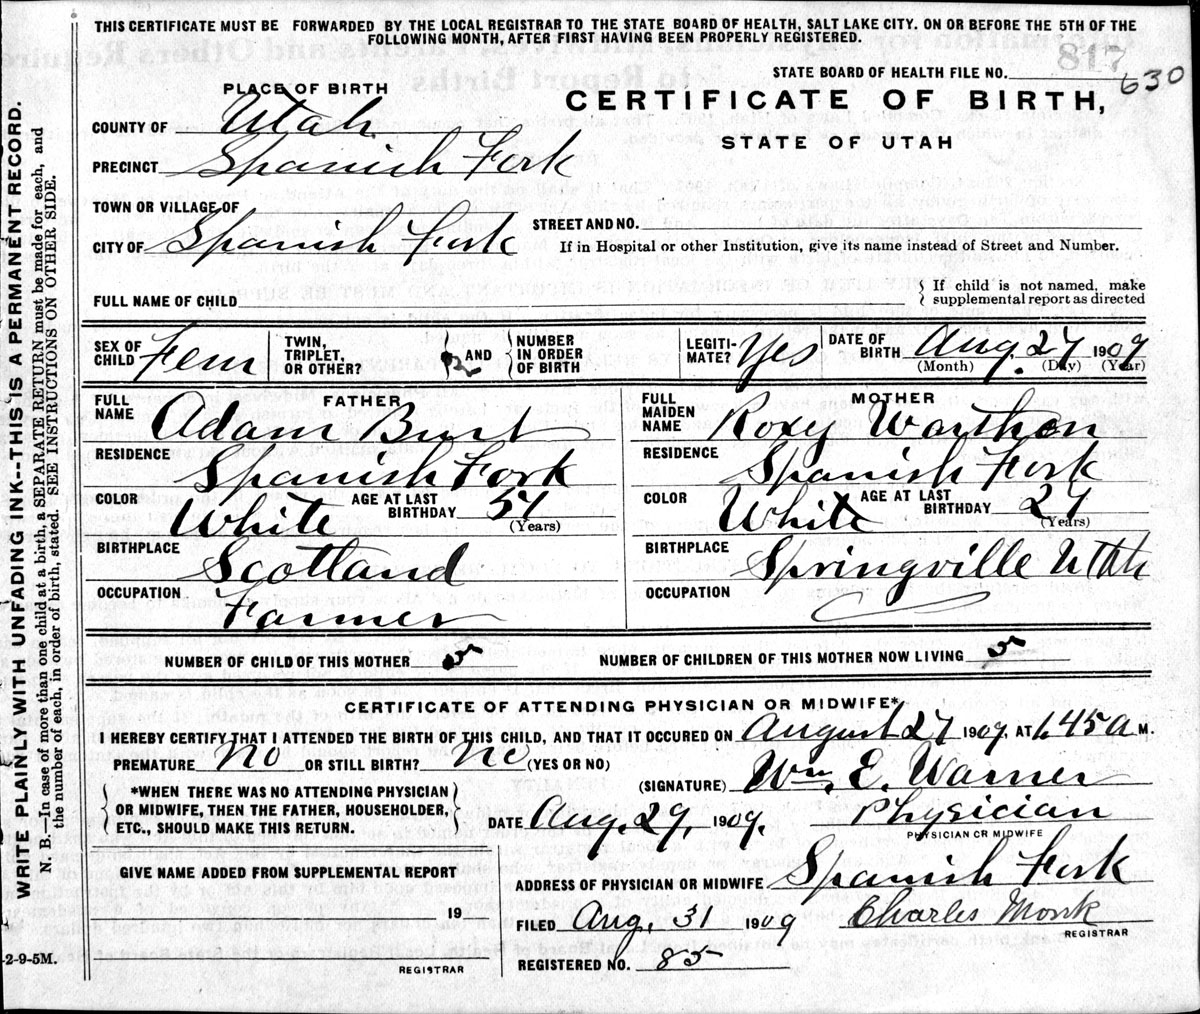 THIS CERTIFICATE MUST BE FORWARDED BY THE LOCAL REGISTRAR TO THE STATE BOARD OF HEALTH, SALT LAKE CITY, ON OR BEFORE THE 5TH OF THE
FOLLOWING MONTH, AFTER FIRST HAVING BEEN PROPERLY REGISTERED.
817
STATE BOARD OF HEALTH FILE NO. 630
PLACE OF BIRTH
CERTIFICATE OF BIRTH,
STATE OF UTAH
COUNTY OF Utah
PRECINCT Spanish Fork
TOWN OR VILLAGE OF
STREET AND NO.
CITY OF Spanish Fork
If in Hospital or other Institution, give its name instead of Street and Number.
FULL NAME OF CHILD
If child is not named, make
supplemental report as directed
SEX OF CHILD Fem
TWIN, TRIPLET, OR OTHER?
AND
NUMBER IN ORDER OF BIRTH
LEGITI-MATE? Yes
DATE OF BIRTH Aug. 27 1909
(Month) (Day) (Year)
FATHER
FULL NAME Adam Burt
RESIDENCE Spanish Fork
COLOR White AGE AT LAST BIRTHDAY 51
(Years)
BIRTHPLACE Scotland
OCCUPATION Farmer
MOTHER
FULL MAIDEN NAME Roxy Warthen
RESIDENCE Spanish Fork
COLOR White AGE AT LAST BIRTHDAY 27
(Years)
BIRTHPLACE Springville Utah
OCCUPATION
NUMBER OF CHILD OF THIS MOTHER 5
NUMBER OF CHILDREN OF THIS MOTHER NOW LIVING 5
CERTIFICATE OF ATTENDING PHYSICIAN OR MIDWIFE*
I HEREBY CERTIFY THAT I ATTENDED THE BIRTH OF THIS CHILD, AND THAT IT OCCURED ON August 27 1909, AT 1.45 a M.
PREMATURE No OR STILL BIRTH? No (YES OR NO)
(SIGNATURE) Wm. E. Warner
*WHEN THERE WAS NO ATTENDING PHYSICIAN
OR MIDWIFE, THEN THE FATHER, HOUSEHOLDER,
ETC., SHOULD MAKE THIS RETURN.
DATE Aug. 29, 1909. Physician
PHYSICIAN OR MIDWIFE
GIVE NAME ADDED FROM SUPPLEMENTAL REPORT
19
REGISTRAR
ADDRESS OF PHYSICIAN OR MIDWIFE Spanish Fork
FILED Aug, 31 1909 Charles Monk
REGISTRAR
REGISTERED NO. 85
-2-9-5M.
WRITE PLAINLY WITH UNFADING INK--THIS IS A PERMANENT RECORD.
N. B.—In case of more than one child at a birth, a SEPARATE RETURN must be made for each, and
the number of each, in order of birth, stated. SEE INSTRUCTIONS ON OTHER SIDE.